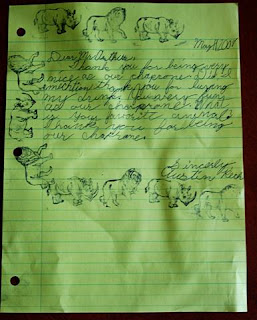 May
Dear
Thank you for being very
nice as our chaprone. Did I
thank you for buying
my drink? fun
as our chaprone. What
is your favorite animal?
Thank you for being
our chaprone.
Sincerly,
Austin